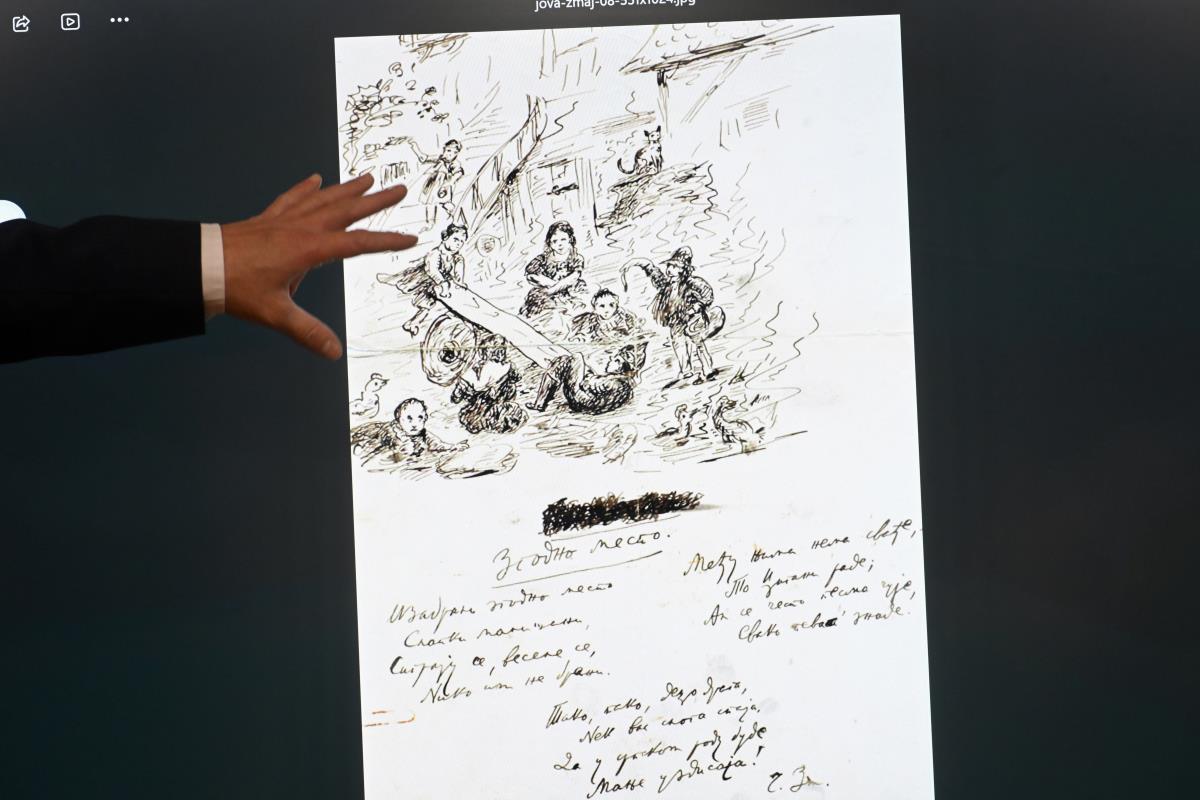 jova-zmaj-08-551x1024.jpg
Згодно место.
Изабрали згодно место
Слатки малишани,
Сиграју се, веселе се,
Нико им не брани.
Међу њима нема свађе,
То раде;
Ал се често песма чује,
Свако певат' знаде.
Тако, тако, децо драга,
Нек вас слога спаја,
Да у српском роду буде
Мање уздисаја!